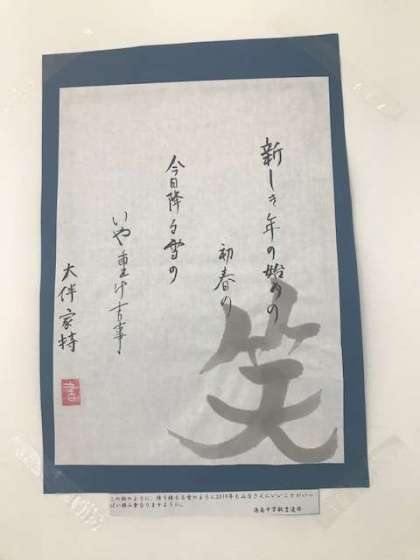 新しき年の始めの
初春の
今日降る雪の
いや重け吉事
大伴家持
笑
この歌のように、降り積もる雪のように2019年もみなさんにいいことがいっ
ぱい積み重なりますように。
中学校書道部